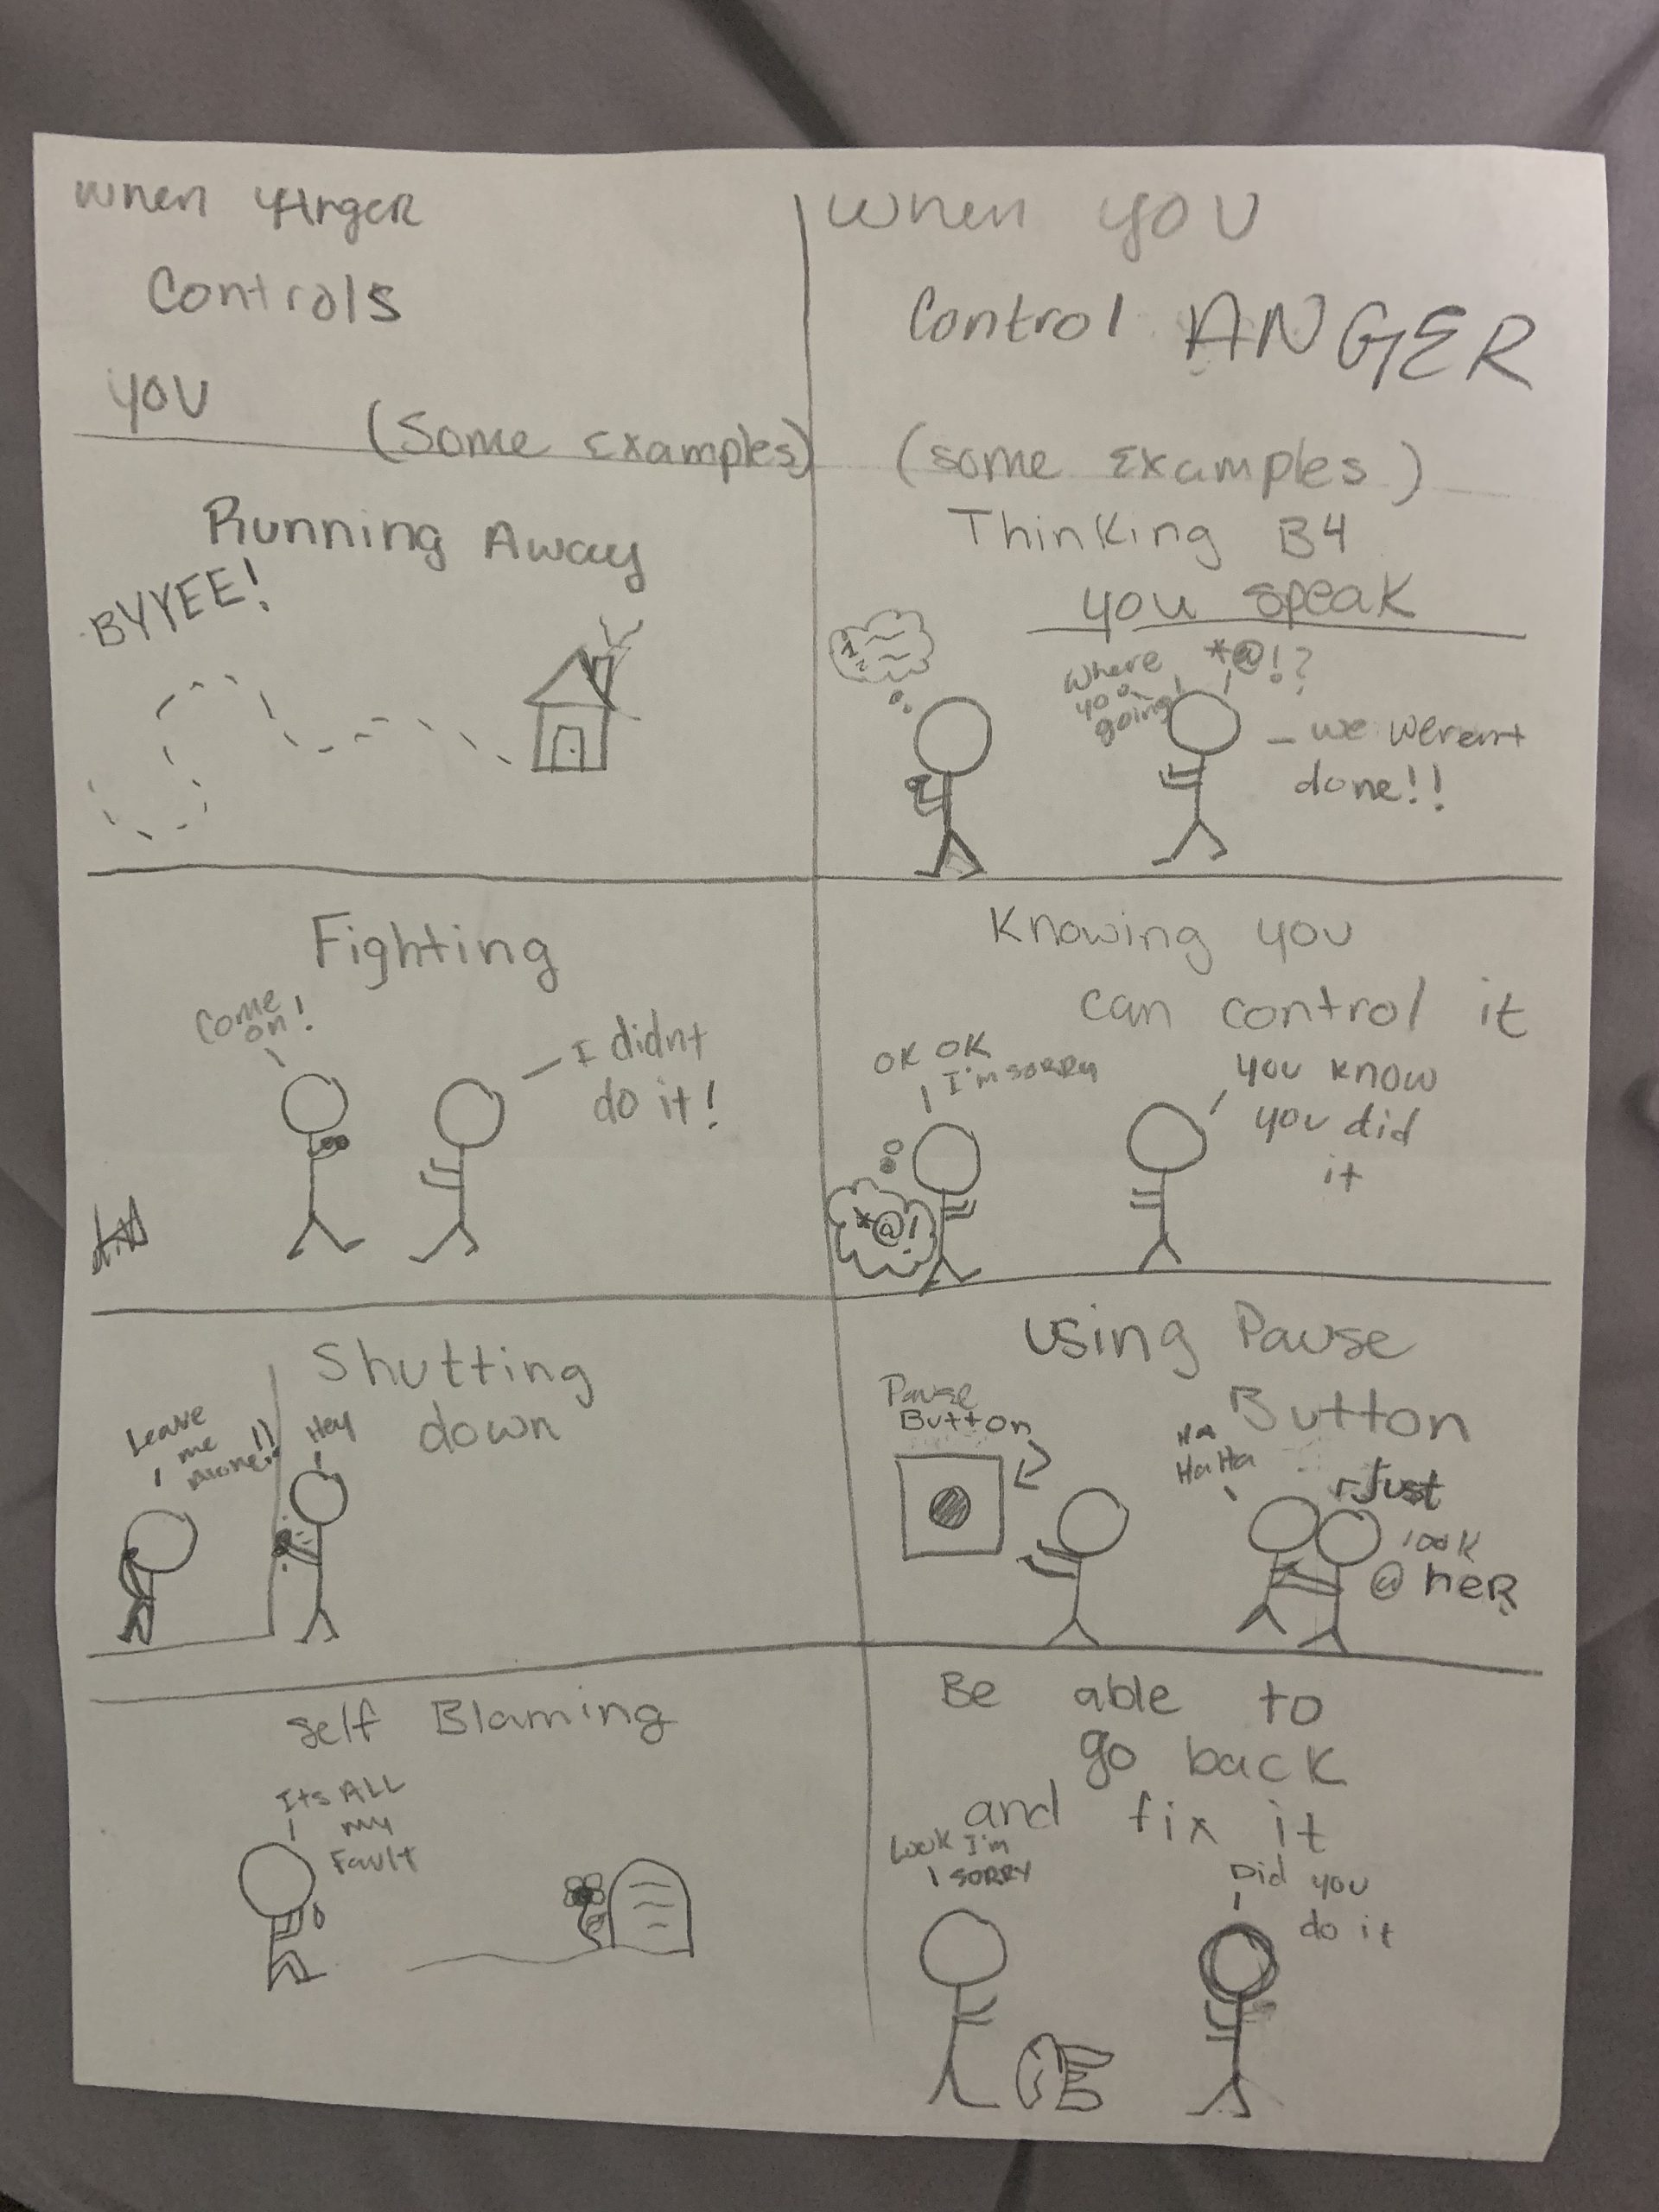 when Anger
Controls
you
(Some Examples)
Running Away
BYYEE!
Fighting
Come
on!
I didnt
do it!
Shutting
down
Leave
me
alone!!
Hey
self Blaming
Its ALL
my
Fault
when you
Control ANGER
(some Examples)
Thinking B4
you speak
1
2
Where
you
going!
*@!?
we werent
done!!
Knowing you
can control it
OK OK
I'm sorry
you know
you did
it
*@!
using Pause
Button
Pause
Button
Ha
Ha Ha
Just
look
@ her
Be able to
go back
and fix it
Look I'm
SORRY
Did you
do it